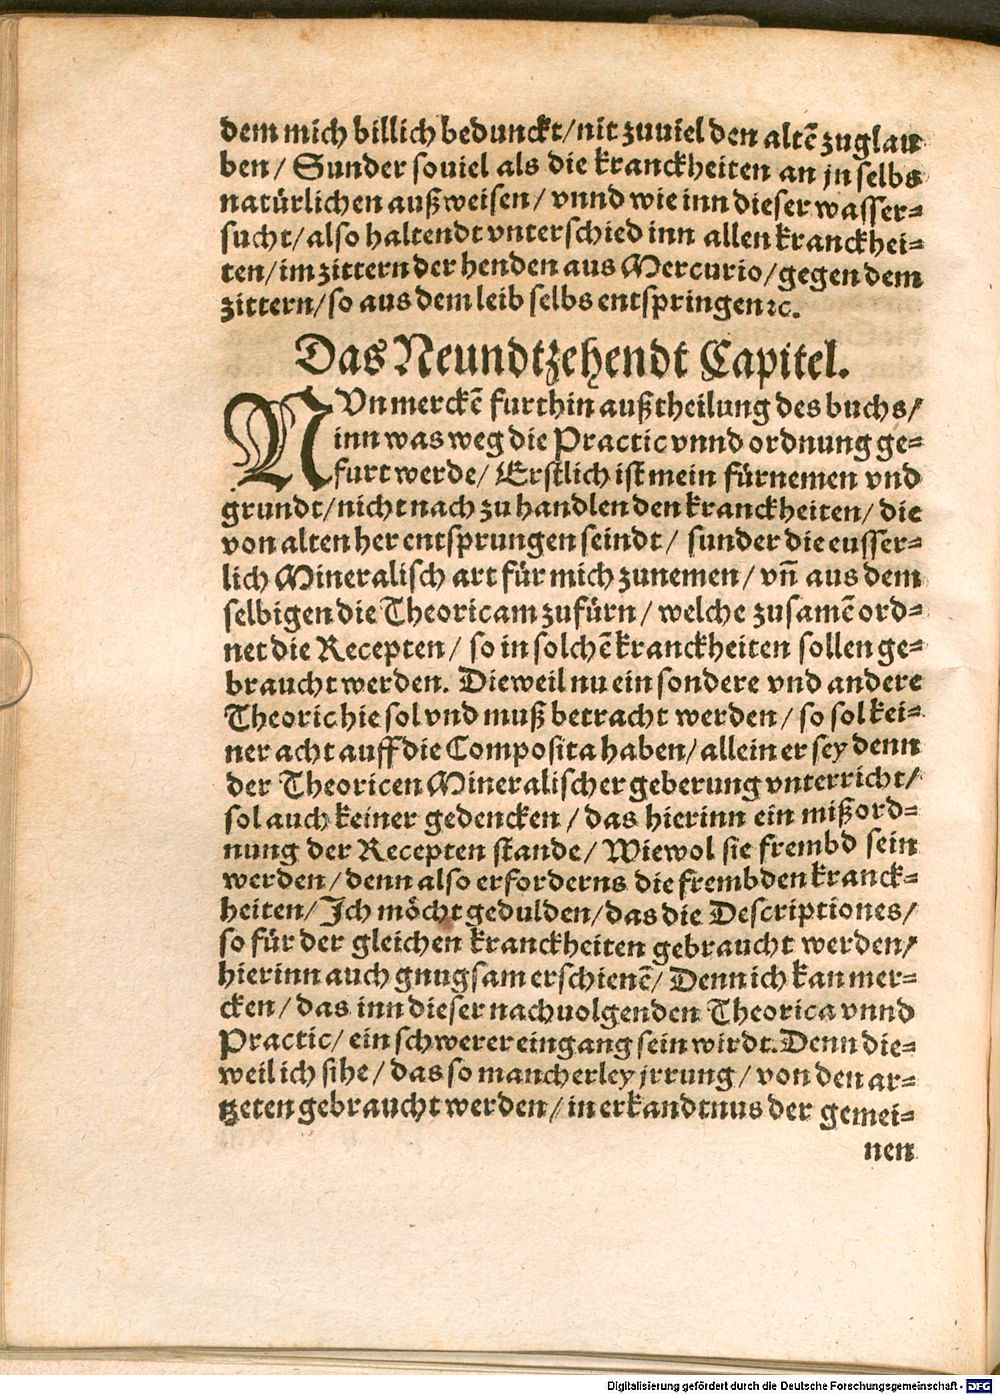 dem mich billich bedunckt/ nit zuuiel den altē zuglau
ben/ Sunder souiel als die kranckheiten an jn selbs
natürlichen außweisen/ vnnd wie inn dieser wasser=
sucht/ also haltendt vnterschied inn allen kranckhei=
ten/ im zittern der henden aus Mercurio/ gegen dem
zittern/ so aus dem leib selbs entspringen ꝛc.
Das Neundtzehendt Capitel.
NVn merckē furthin außtheilung des buchs/
inn was weg die Practic vnnd ordnung ge=
furt werde/ Erstlich ist mein fürnemen vnd
grundt/ nicht nach zu handlen den kranckheiten/ die
von alten her entsprungen seindt/ sunder die eusser=
lich Mineralisch art für mich zunemen/ vn̄ aus dem
selbigen die Theoricam zufürn/ welche zusamē ord=
net die Recepten/ so in solchē kranckheiten sollen ge=
braucht werden. Dieweil nu ein sondere vnd andere
Theoric hie sol vnd muß betracht werden/ so sol kei=
ner acht auff die Composita haben/ allein er sey denn
der Theoricen Mineralischer geberung vnterricht/
sol auch keiner gedencken/ das hierinn ein mißord=
nung der Recepten stande/ Wiewol sie frembd sein
werden/ denn also erforderns die frembden kranck=
heiten/ Ich möcht gedulden/ das die Descriptiones/
so für der gleichen kranckheiten gebraucht werden/
hierinn auch gnugsam erschienē/ Denn ich kan mer=
cken/ das inn dieser nachuolgenden Theorica vnnd
Practic/ ein schwerer eingang sein wirdt. Denn die=
weil ich sihe/ das so mancherley jrrung/ von den ar=
tzeten gebraucht werden/ in erkandtnus der gemei=
nen
Digitalisierung gefördert durch die Deutsche Forschungsgemeinschaft - DFG